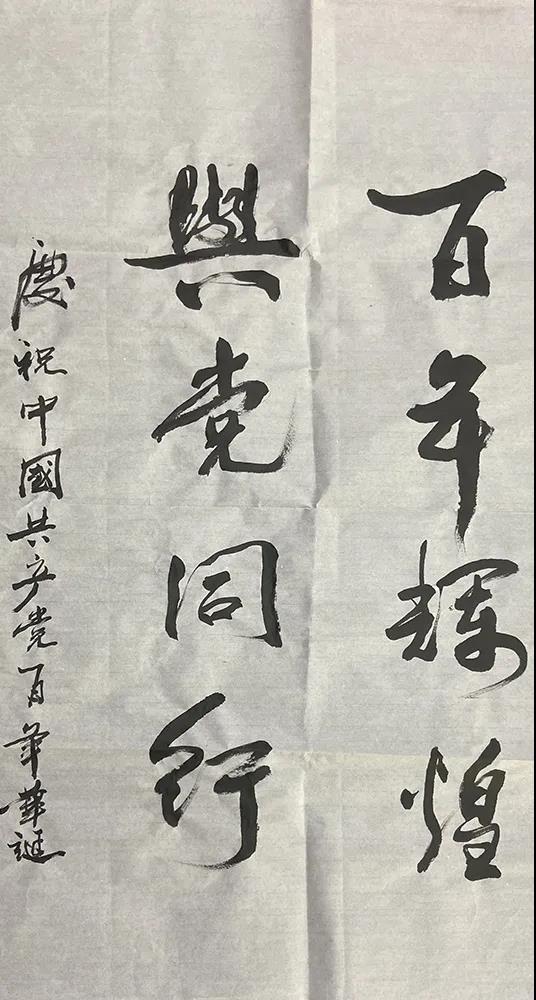 百年辉煌
與党同行
慶祝中國共产党百年華誕